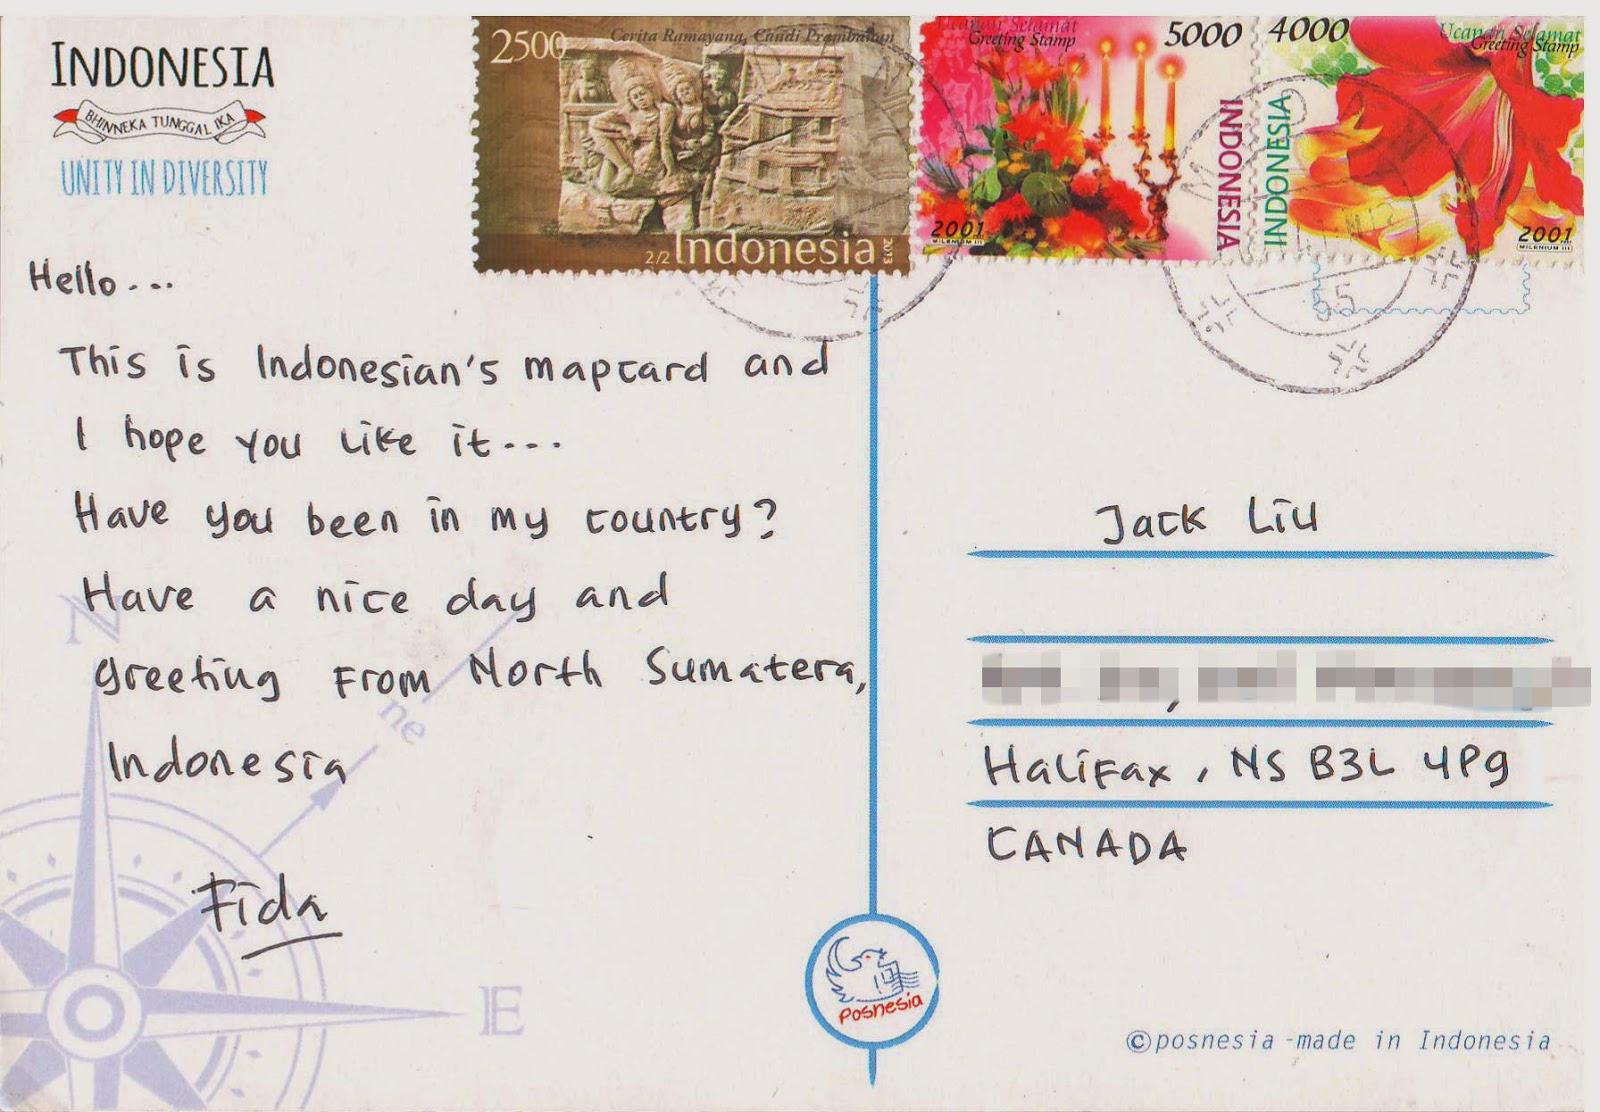 INDONESIA
BHINNEKA TUNGGAL IKA
UNITY IN DIVERSITY
2500
Cerita Ramayana, Candi Prambanan
2/2 Indonesia 2013
Ucapan Selamat
Greeting Stamp
5000
INDONESIA
2001
MILENIUM III
4000
Ucapan Selamat
Greeting Stamp
INDONESIA
2001
MILENIUM III
Hello...
This is Indonesian's mapcard and
I hope you like it...
Have you been in my country?
Have a nice day and
greeting from North Sumatera,
Indonesia
Fida
N
ne
E
Jack Liu
Halifax, NS B3L 4P9
CANADA
posnesia
©posnesia-made in Indonesia